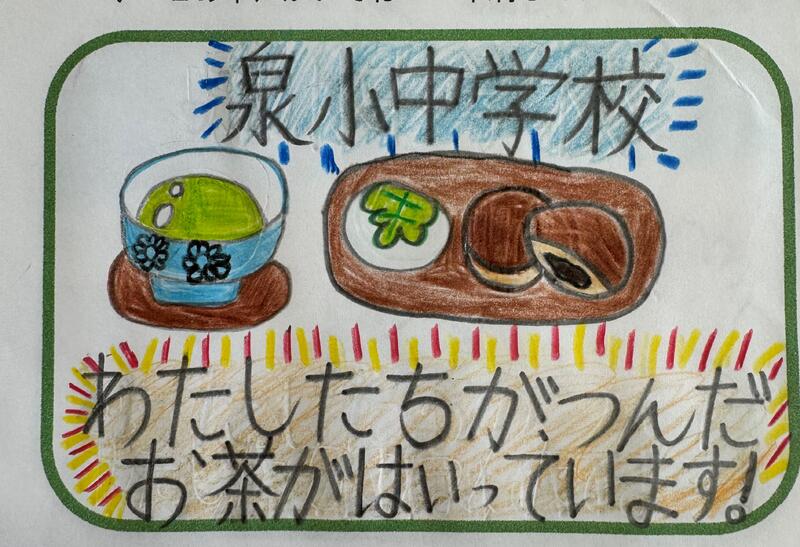 泉小中学校
わたしたちがつんだ
お茶がはいっています!